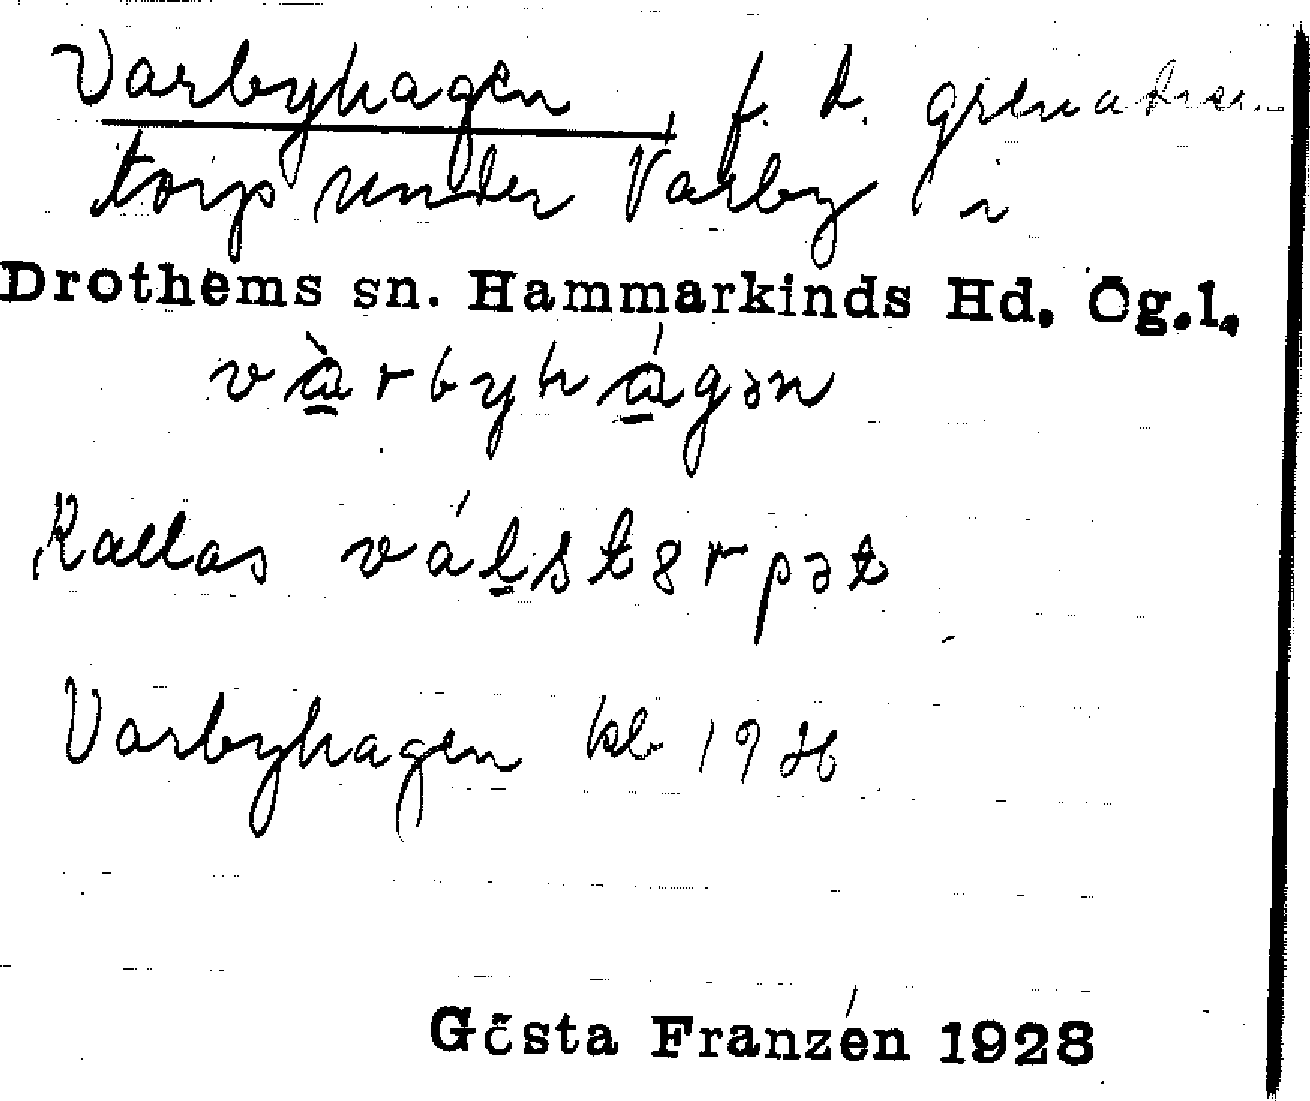 Varbyhagen, f. d. grenadier-
torp under Varby i
Drothems sn. Hammarkinds Hd. Ög.l.
và̱rbyhá̱gən
Kallas váḻstərpət
Varbyhagen kb 1926
Gösta Franzén 1928